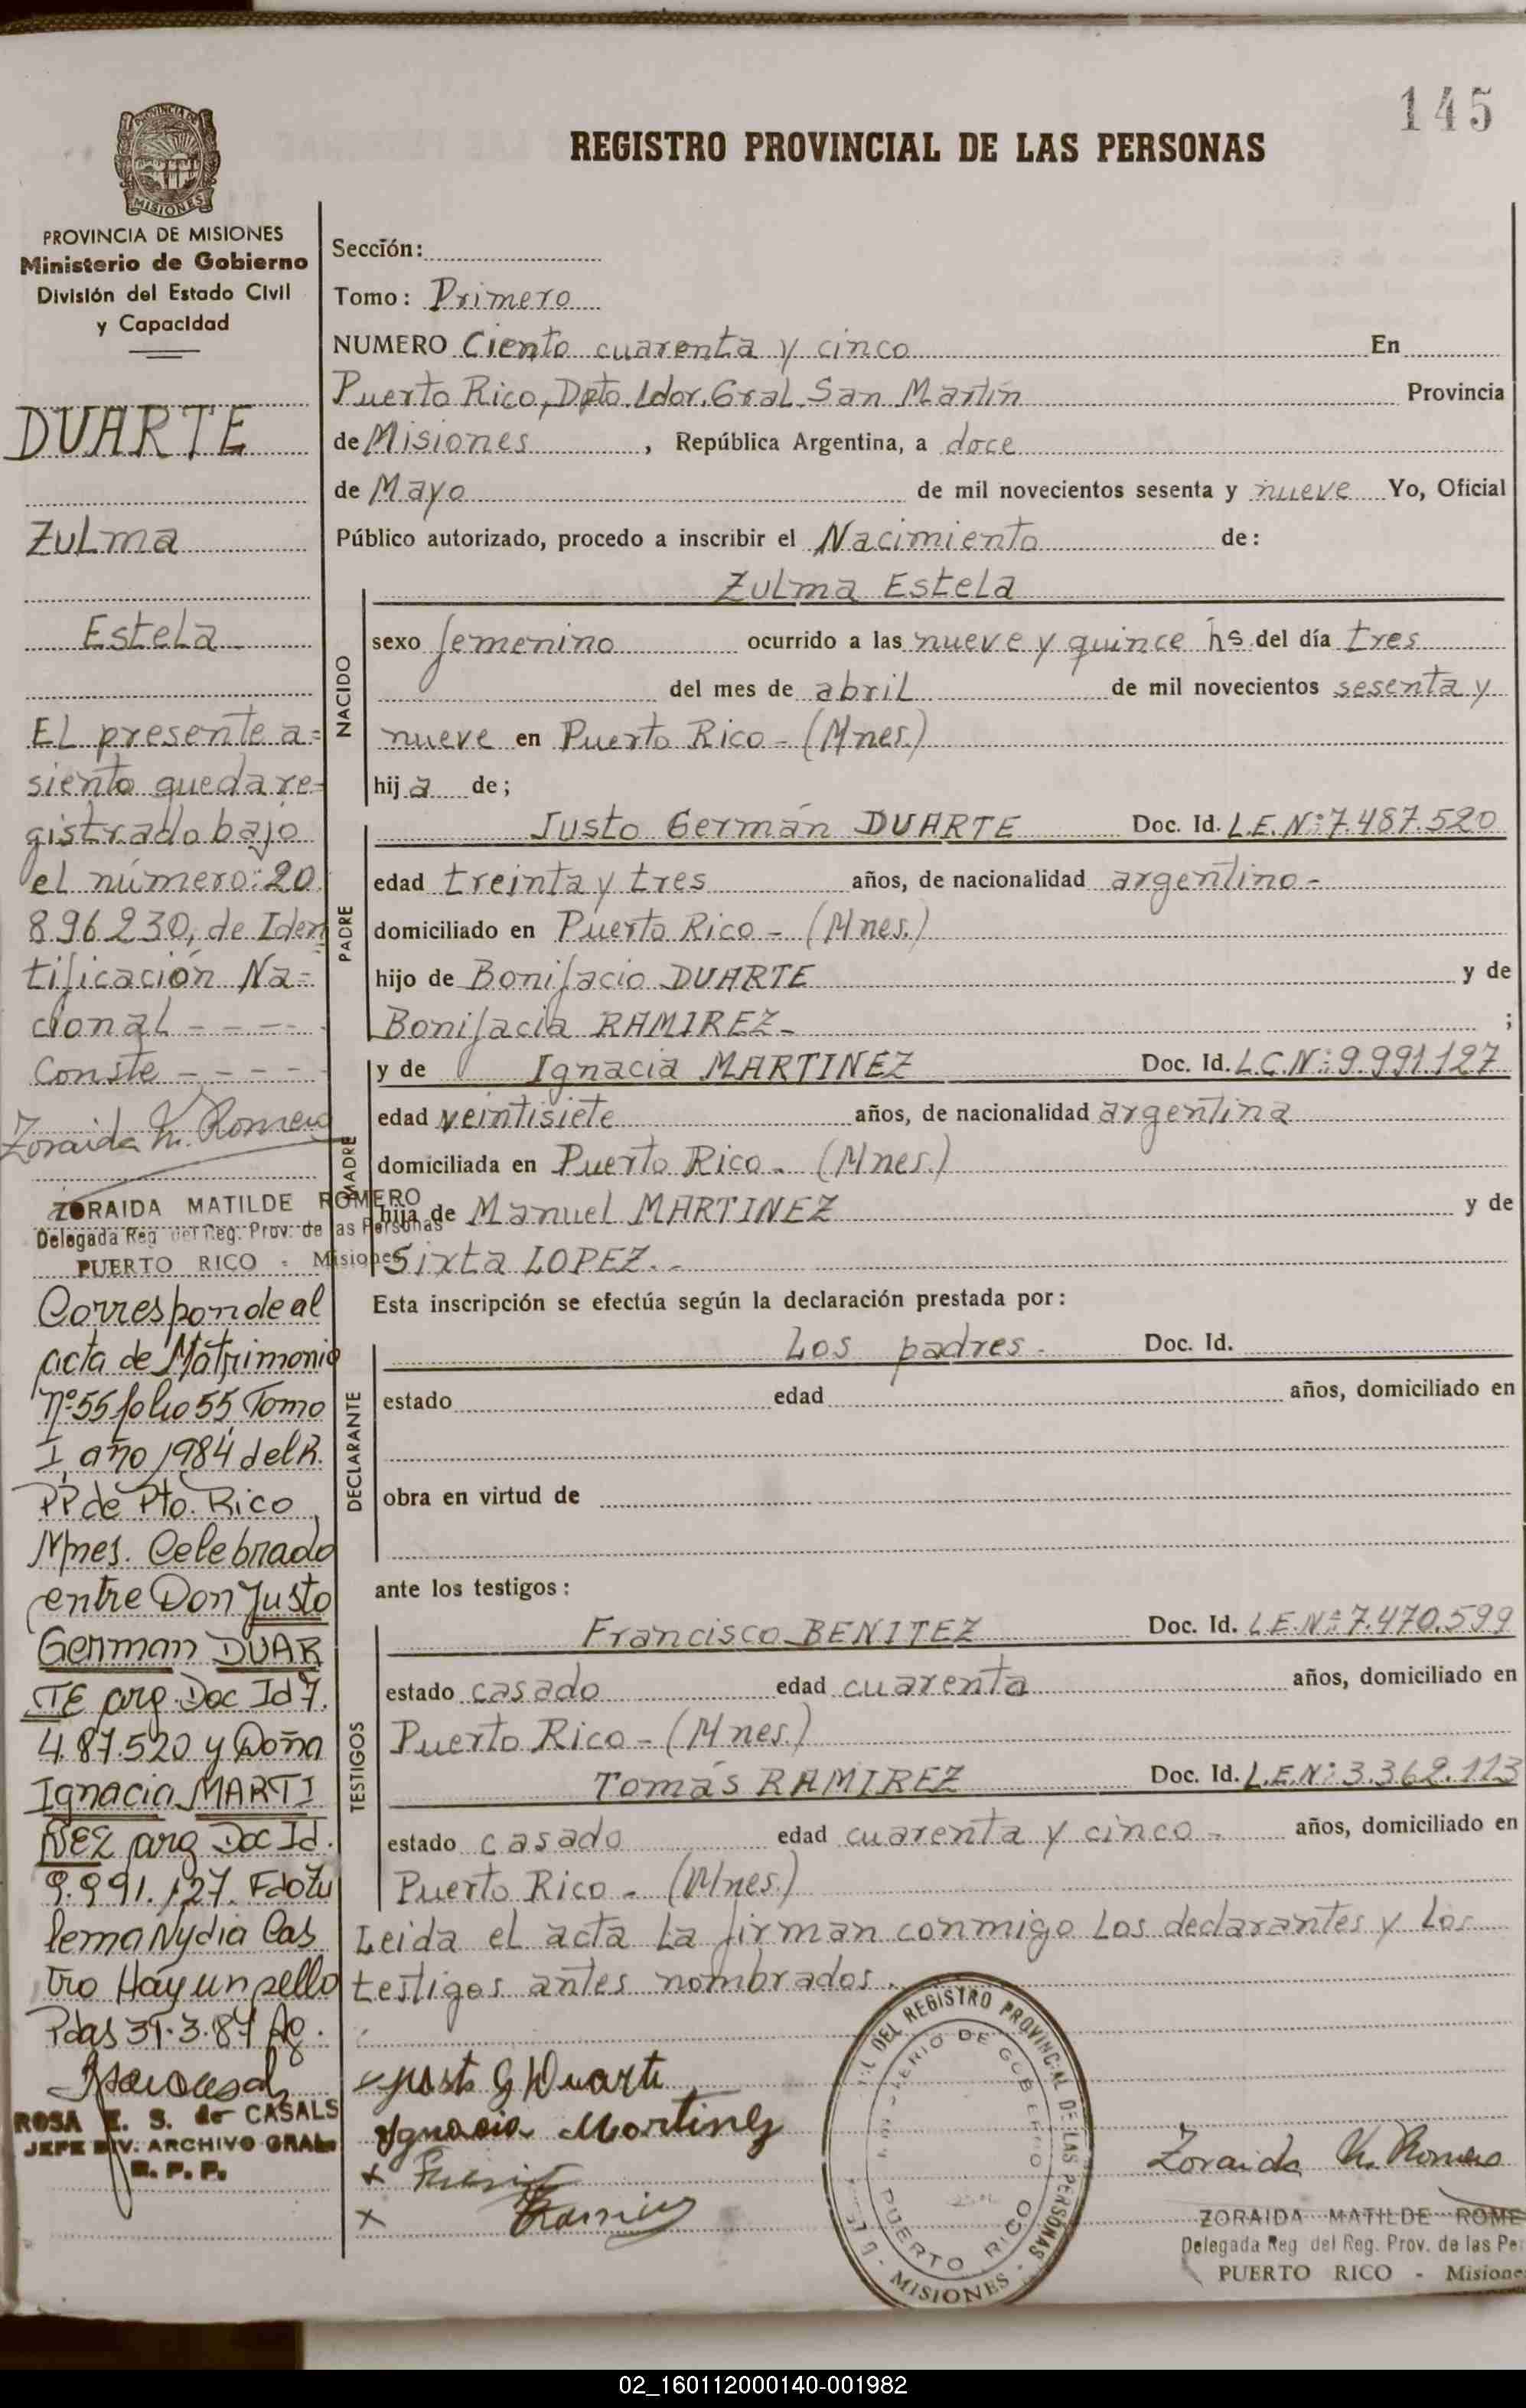 145
REGISTRO PROVINCIAL DE LAS PERSONAS
PROVINCIA DE
MISIONES
PROVINCIA DE MISIONES
Ministerio de Gobierno
División del Estado Civil
y Capacidad
DUARTE
Zulma
Estela
El presente a=
siento queda re=
gistrado bajo
el número: 20.
896.230, de Iden
tificación Na=
cional - - - -
Conste - - - -
Zoraida M. Romero
ZORAIDA MATILDE ROMERO
Delegada Reg del Reg. Prov. de las Personas
PUERTO RICO - Misiones
Corresponde al
acta de Matrimonio
Nº 55 folio 55 Tomo
I año 1984 del R.
PP de Pto. Rico
Mnes. Celebrado
entre Don Justo
German DUAR
TE arg. Doc Id 7.
487.520 y Doña
Ignacia MARTI
NEZ arg Doc Id.
9.991.127. Fdo Zu
lema Nydia Cas
tro Hay un sello
Pdas 31.3.87
ROSA E. S. de CASALS
JEFE DIV. ARCHIVO GRAL
R. P. P.
Sección:
Tomo: Primero
NUMERO Ciento cuarenta y cinco En
Puerto Rico, Dpto. Ldor. Gral. San Martín Provincia
de Misiones , República Argentina, a doce
de Mayo de mil novecientos sesenta y nueve Yo, Oficial
Público autorizado, procedo a inscribir el Nacimiento de:
Zulma Estela
NACIDO
sexo femenino ocurrido a las nueve y quince hs. del día tres
del mes de abril de mil novecientos sesenta y
nueve en Puerto Rico - (Mnes.)
hij a de;
PADRE
Justo Germán DUARTE Doc. Id. L.E. Nº: 7.487.520
edad treinta y tres años, de nacionalidad argentino -
domiciliado en Puerto Rico - (Mnes.)
hijo de Bonifacio DUARTE y de
Bonifacia RAMIREZ - ;
MADRE
y de Ignacia MARTINEZ Doc. Id. L.C. Nº: 9.991.127
edad veintisiete años, de nacionalidad argentina
domiciliada en Puerto Rico - (Mnes.)
hija de Manuel MARTINEZ y de
Sixta LOPEZ. -
Esta inscripción se efectúa según la declaración prestada por:
DECLARANTE
Los padres - Doc. Id.
estado edad años, domiciliado en
obra en virtud de
ante los testigos:
TESTIGOS
Francisco BENITEZ Doc. Id. L.E. Nº: 7.470.599
estado casado edad cuarenta años, domiciliado en
Puerto Rico - (Mnes.)
Tomás RAMIREZ Doc. Id. L.E. Nº: 3.362.113
estado casado edad cuarenta y cinco - años, domiciliado en
Puerto Rico - (Mnes.)
Leida el acta la firman conmigo los declarantes y los
testigos antes nombrados.
Justo G Duarte
Ignacia Martinez
x
x Ramirez
DEL REGISTRO PROVINCIAL DE LAS PERSONAS
MISIONES
DE GOBIERNO
PUERTO RICO
Zoraida M. Romero
ZORAIDA MATILDE ROME
Delegada Reg del Reg. Prov. de las Pe
PUERTO RICO - Misione
02_160112000140-001982